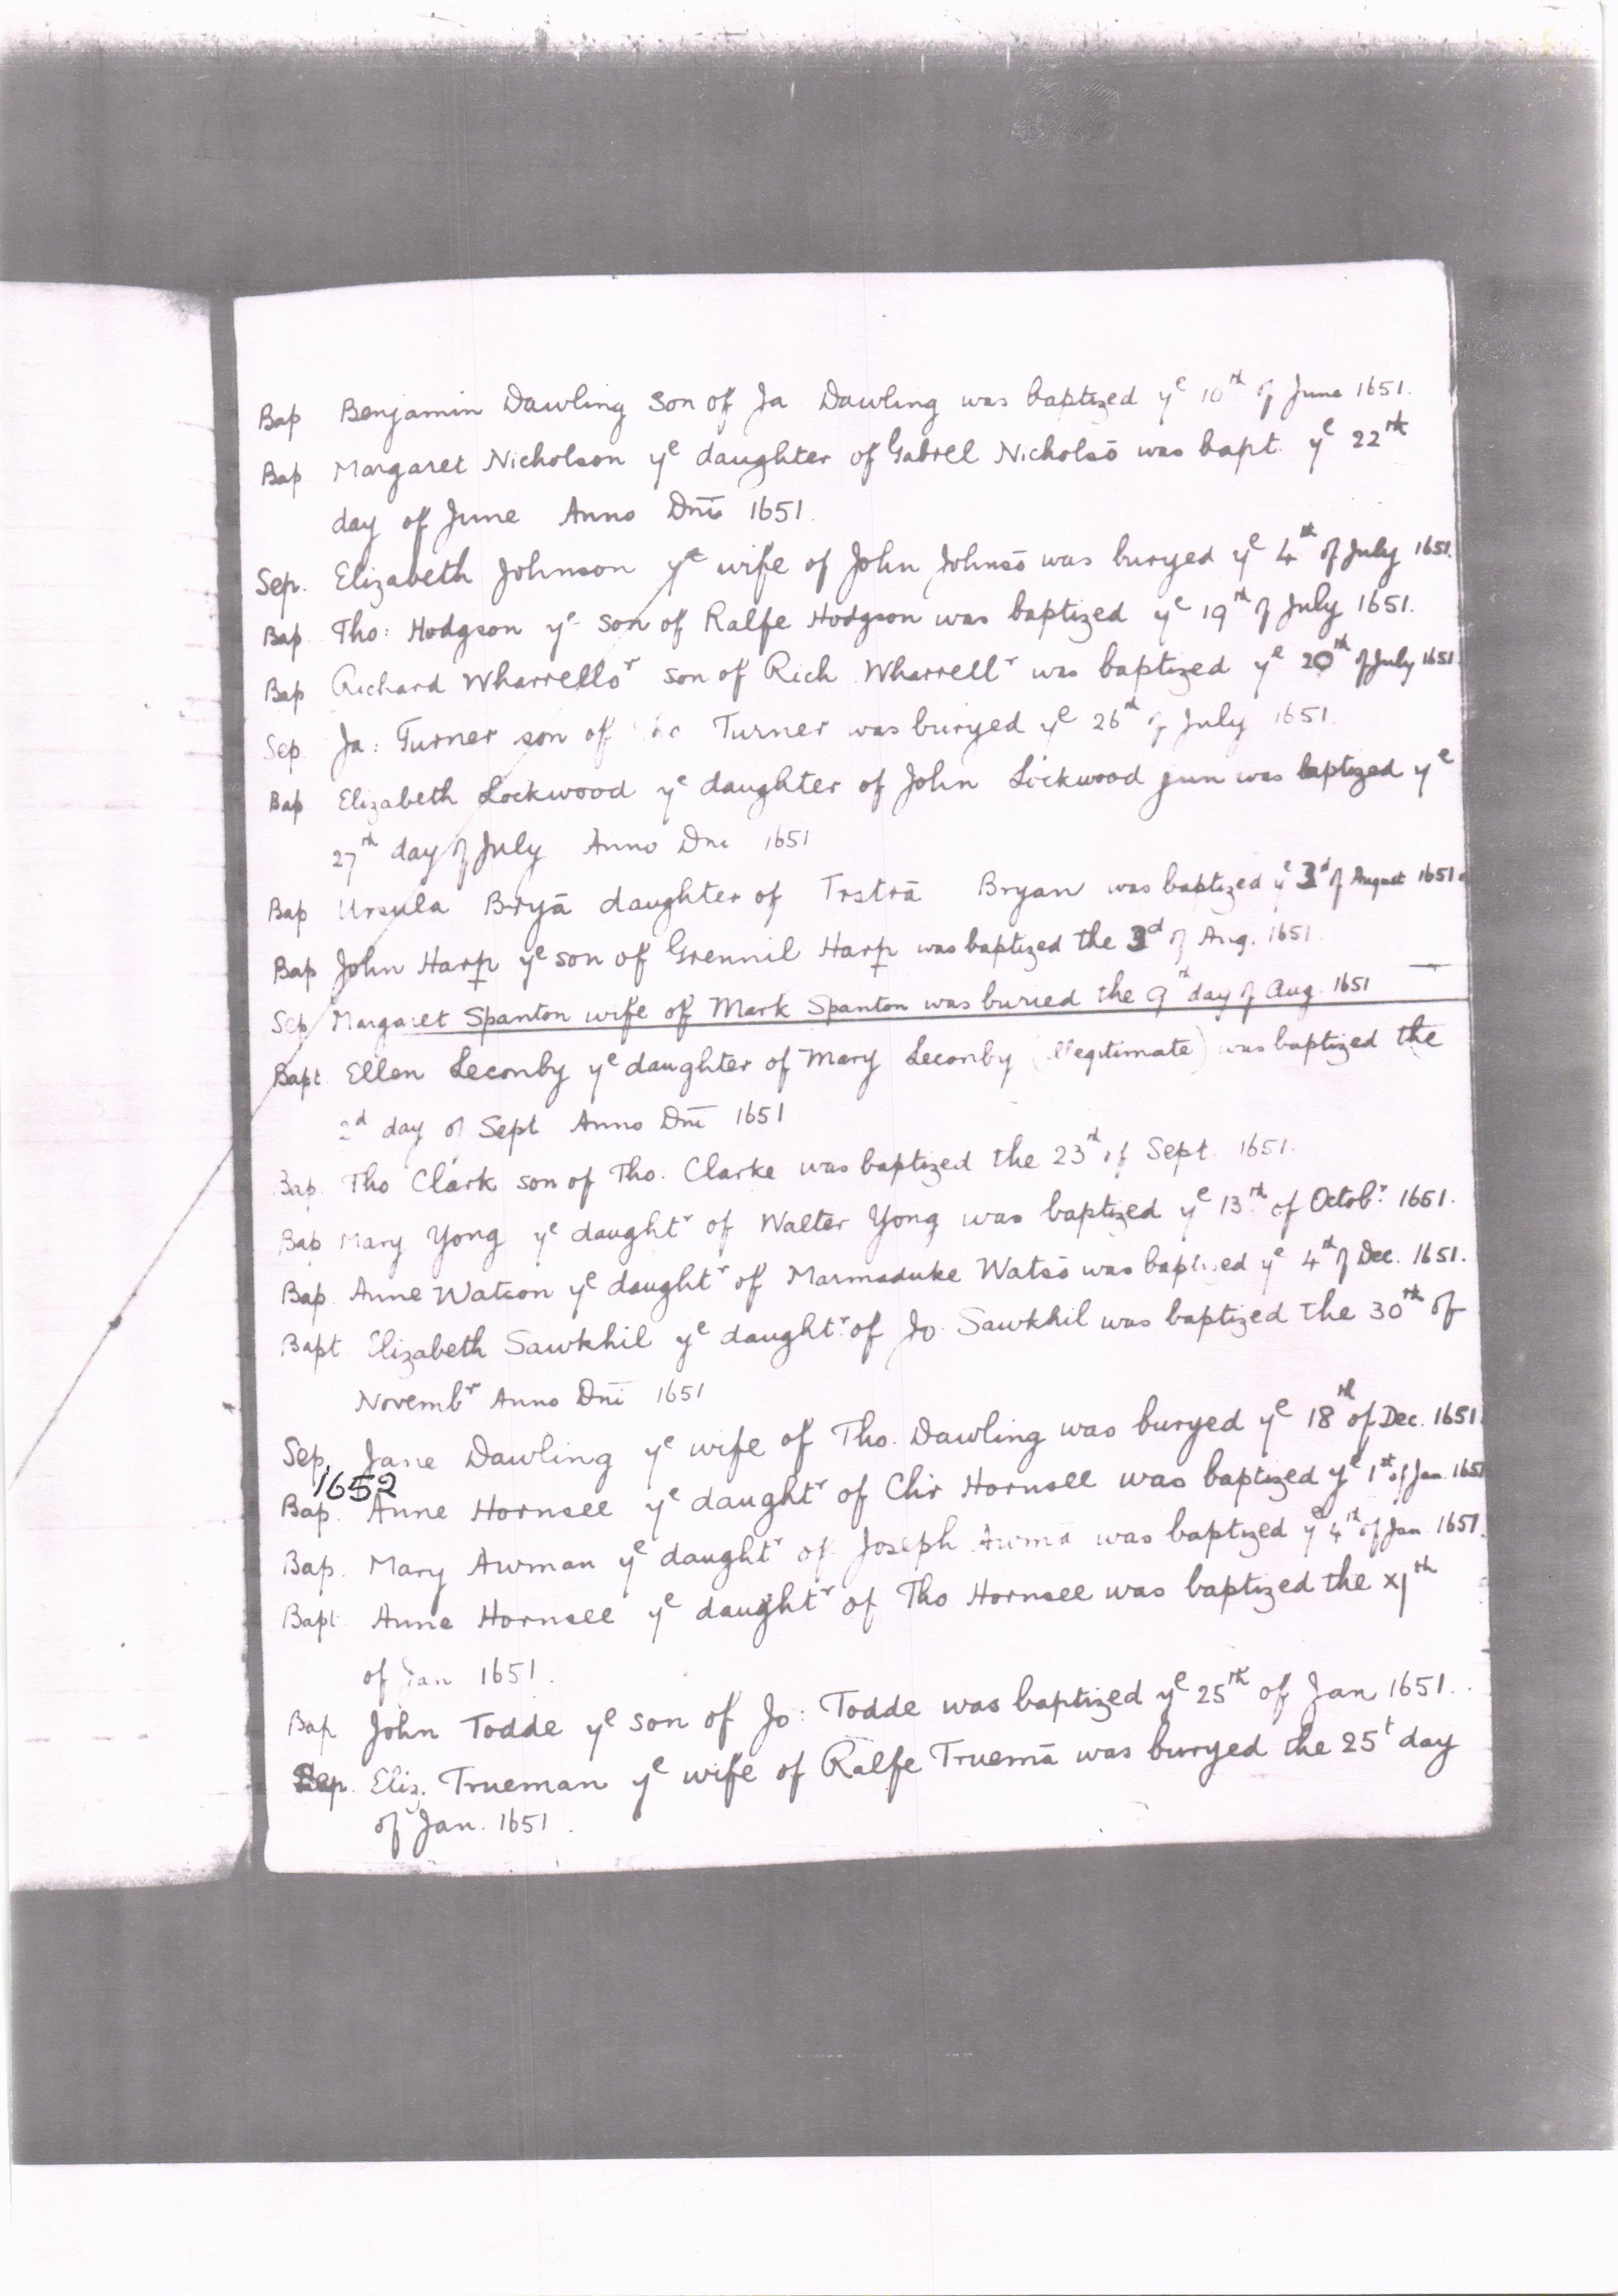 Bap Benjamin Dawling son of Ja Dawling was baptized yᵉ 10ᵗʰ of June 1651.
Bap Margaret Nicholson yᵉ daughter of Gabrel Nicholsō was bapt. yᵉ 22ᵗʰ
day of June Anno Dnī 1651.
Sep. Elizabeth Johnson yᵉ wife of John Johnsō was buryed yᵉ 4ᵗʰ of July 1651.
Bap Tho: Hodgson yᵉ son of Ralfe Hodgson was baptized yᵉ 19ᵗʰ of July 1651.
Bap Richard Wharrelloʳ son of Rich Wharrellʳ was baptized yᵉ 20ᵗʰ of July 1651.
Sep Ja: Turner son of Turner was buryed yᵉ 26ᵗʰ of July 1651.
Bap Elizabeth Lockwood yᵉ daughter of John Lockwood jun was baptized yᵉ
27ᵗʰ day of July Anno Dni 1651
Bap Ursula Bryā daughter of Trstrā Bryan was baptized yᵉ 3ᵈ of August 1651.
Bap John Harp yᵉ son of Grennil Harp was baptized the 3ᵈ of Aug. 1651.
Sep Margaret Spanton wife of Mark Spanton was buried the 9ᵗʰ day of Aug. 1651
Bapt Ellen Leconby yᵉ daughter of Mary Leconby (illegitimate) was baptized the
2ᵈ day of Sept Anno Dnī 1651
Bap. Tho Clark son of Tho. Clarke was baptized the 23ᵗʰ of Sept. 1651.
Bap Mary Yong yᵉ daughtʳ of Walter Yong was baptized yᵉ 13ᵗʰ of Octobʳ. 1651.
Bap. Anne Watson yᵉ daughtʳ of Marmaduke Watsō was baptised yᵉ 4ᵗʰ of Dec. 1651.
Bapt Elizabeth Sawkhil yᵉ daughtʳ. of Jo. Sawkhil was baptized the 30ᵗʰ of
Novembʳ Anno Dnī 1651
Sep. Jane Dawling yᵉ wife of Tho. Dawling was buryed yᵉ 18ᵗʰ of Dec. 1651.
1652
Bap. Anne Hornsee yᵉ daughtʳ of Chr Hornsee was baptized yᵉ 1ˢᵗ of Jan. 1651
Bap. Mary Awman yᵉ daughtʳ of Joseph was baptized yᵉ 4ᵗʰ of Jan. 1651.
Bapt Anne Hornsee yᵉ daughtʳ of Tho Hornsee was baptized the xjᵗʰ
of Jan 1651.
Bap John Todde yᵉ son of Jo: Todde was baptized yᵉ 25ᵗʰ of Jan 1651.
Sep. Eliz. Trueman yᵉ wife of Ralfe Truemā was buryed the 25ᵗ day
of Jan. 1651.